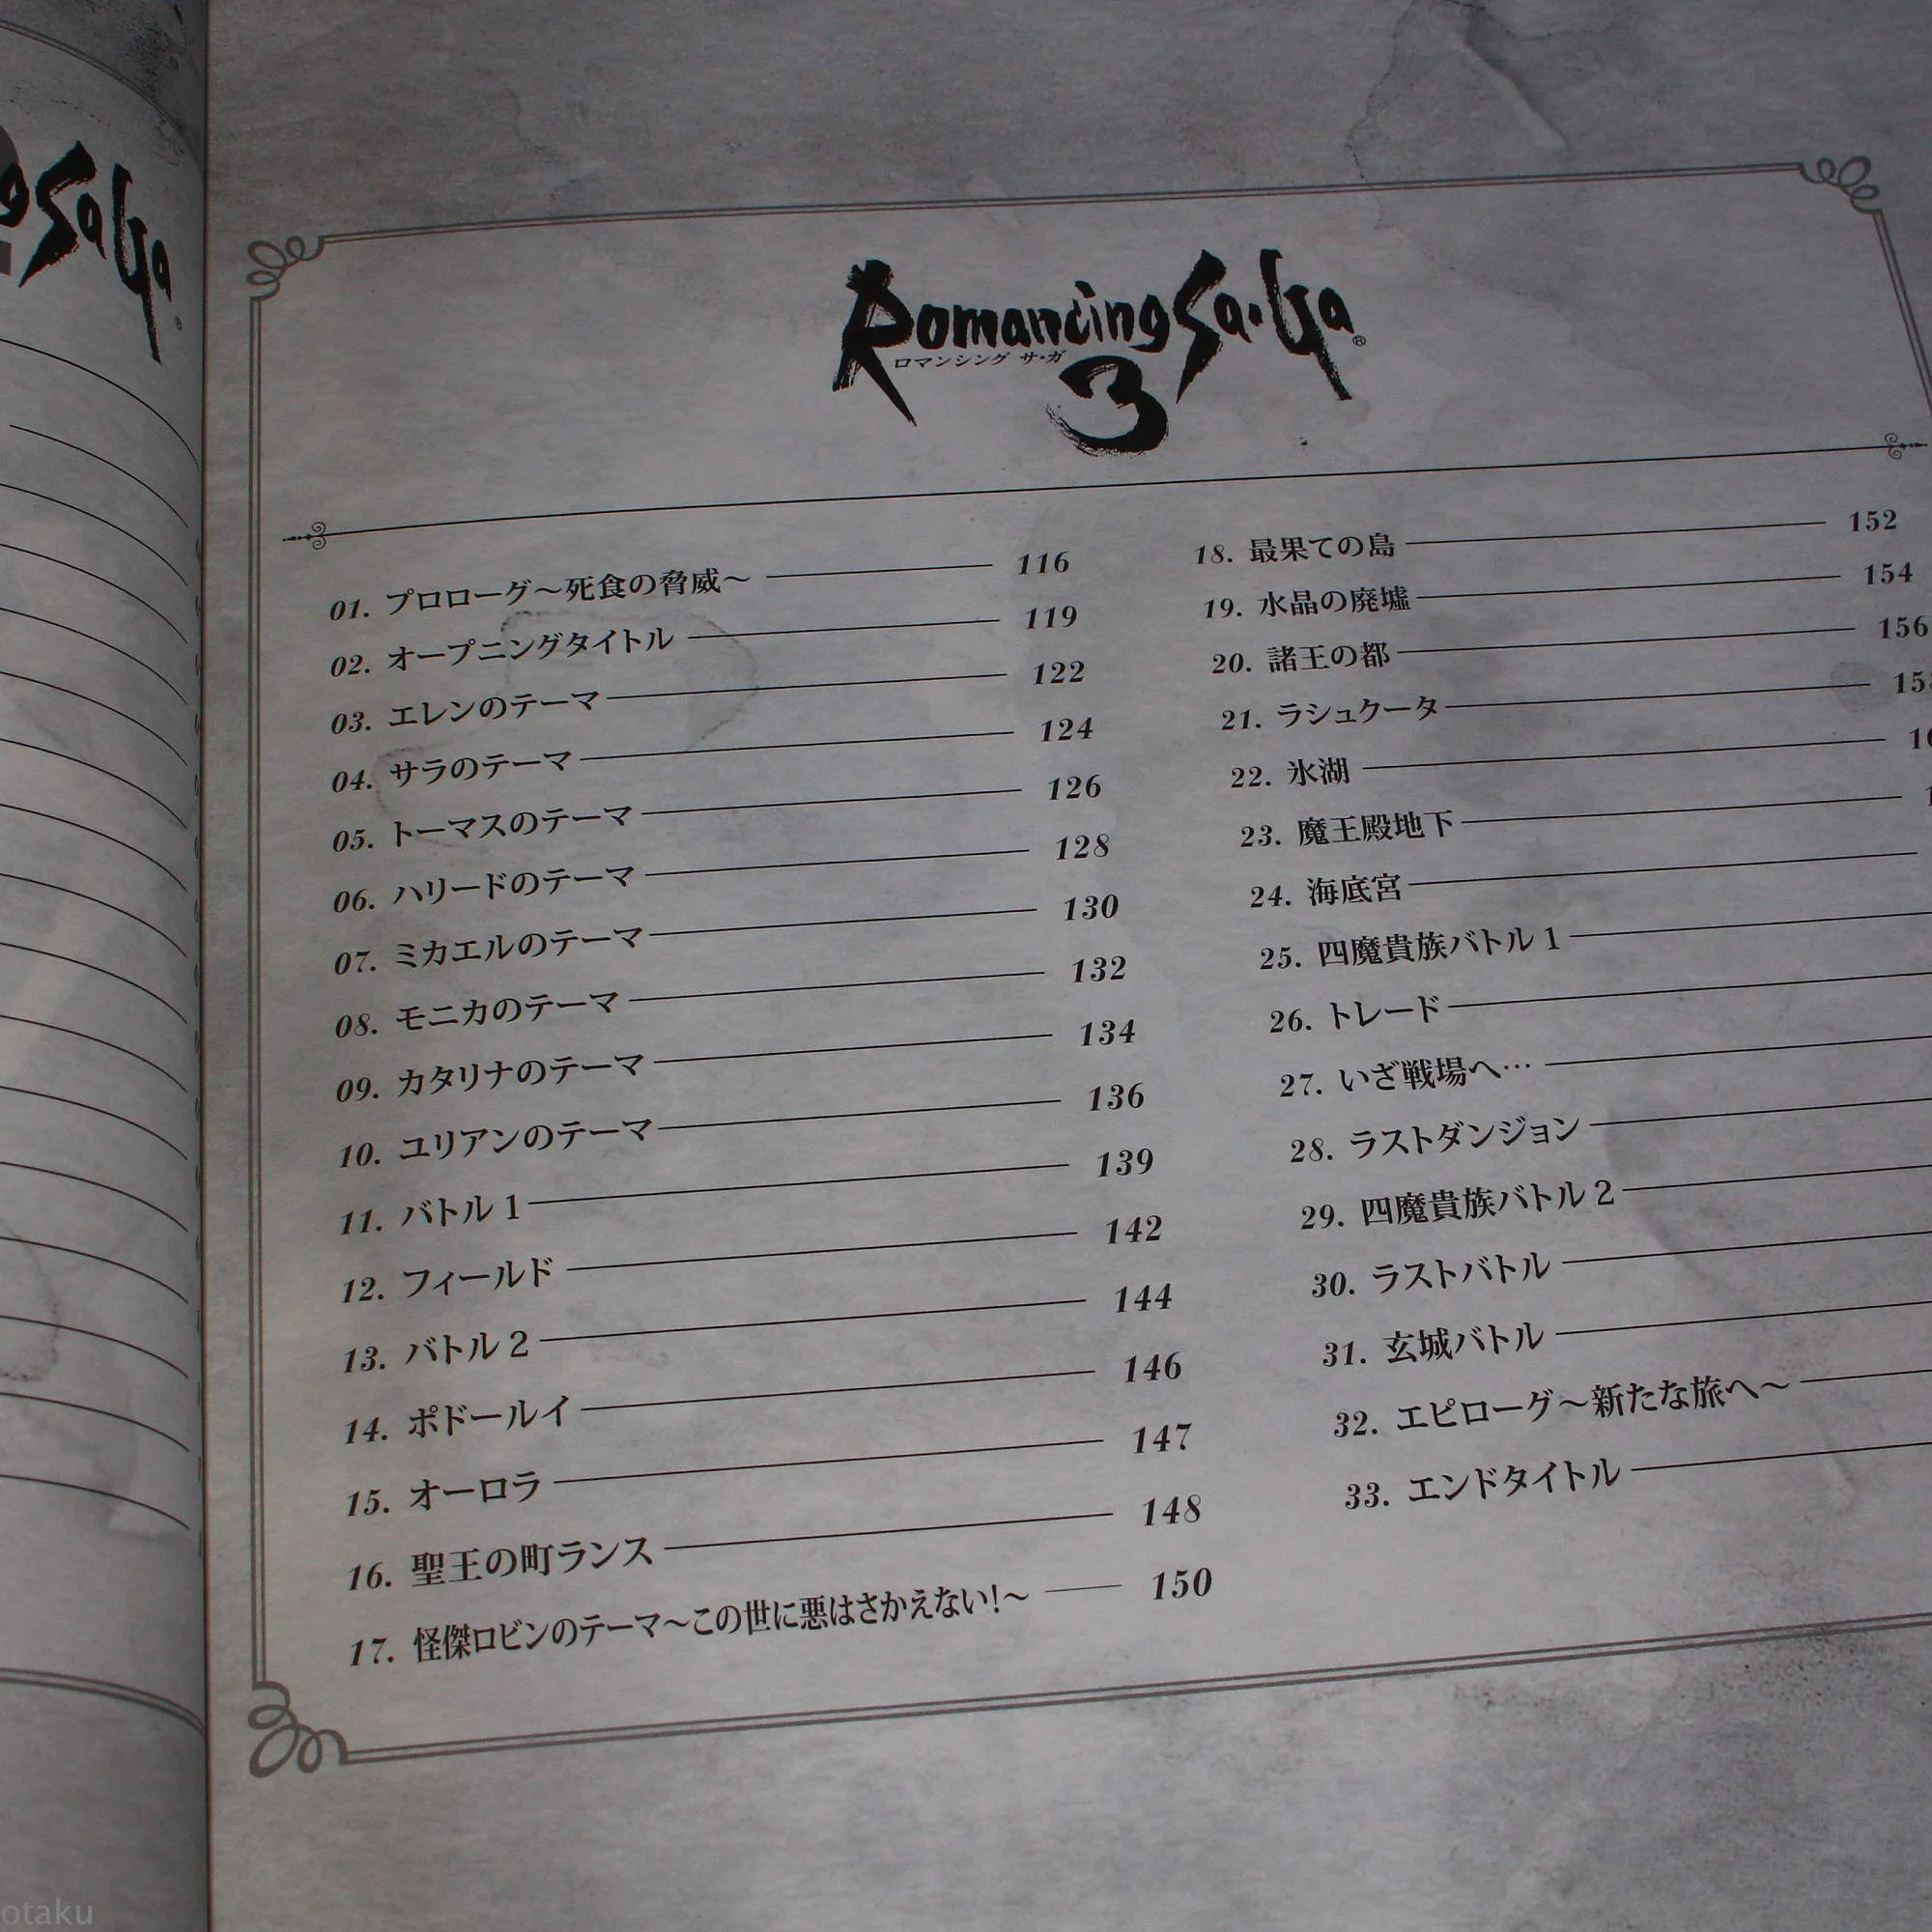 SaGa
Romancing Sa・Ga®
ロマンシング サ・ガ
3
01. プロローグ～死食の脅威～ 116
02. オープニングタイトル 119
03. エレンのテーマ 122
04. サラのテーマ 124
05. トーマスのテーマ 126
06. ハリードのテーマ 128
07. ミカエルのテーマ 130
08. モニカのテーマ 132
09. カタリナのテーマ 134
10. ユリアンのテーマ 136
11. バトル1 139
12. フィールド 142
13. バトル2 144
14. ポドールイ 146
15. オーロラ 147
16. 聖王の町ランス 148
17. 怪傑ロビンのテーマ～この世に悪はさかえない!～ 150
18. 最果ての島 152
19. 水晶の廃墟 154
20. 諸王の都 156
21. ラシュクータ
22. 氷湖
23. 魔王殿地下
24. 海底宮
25. 四魔貴族バトル1
26. トレード
27. いざ戦場へ…
28. ラストダンジョン
29. 四魔貴族バトル2
30. ラストバトル
31. 玄城バトル
32. エピローグ～新たな旅へ～
33. エンドタイトル
otaku